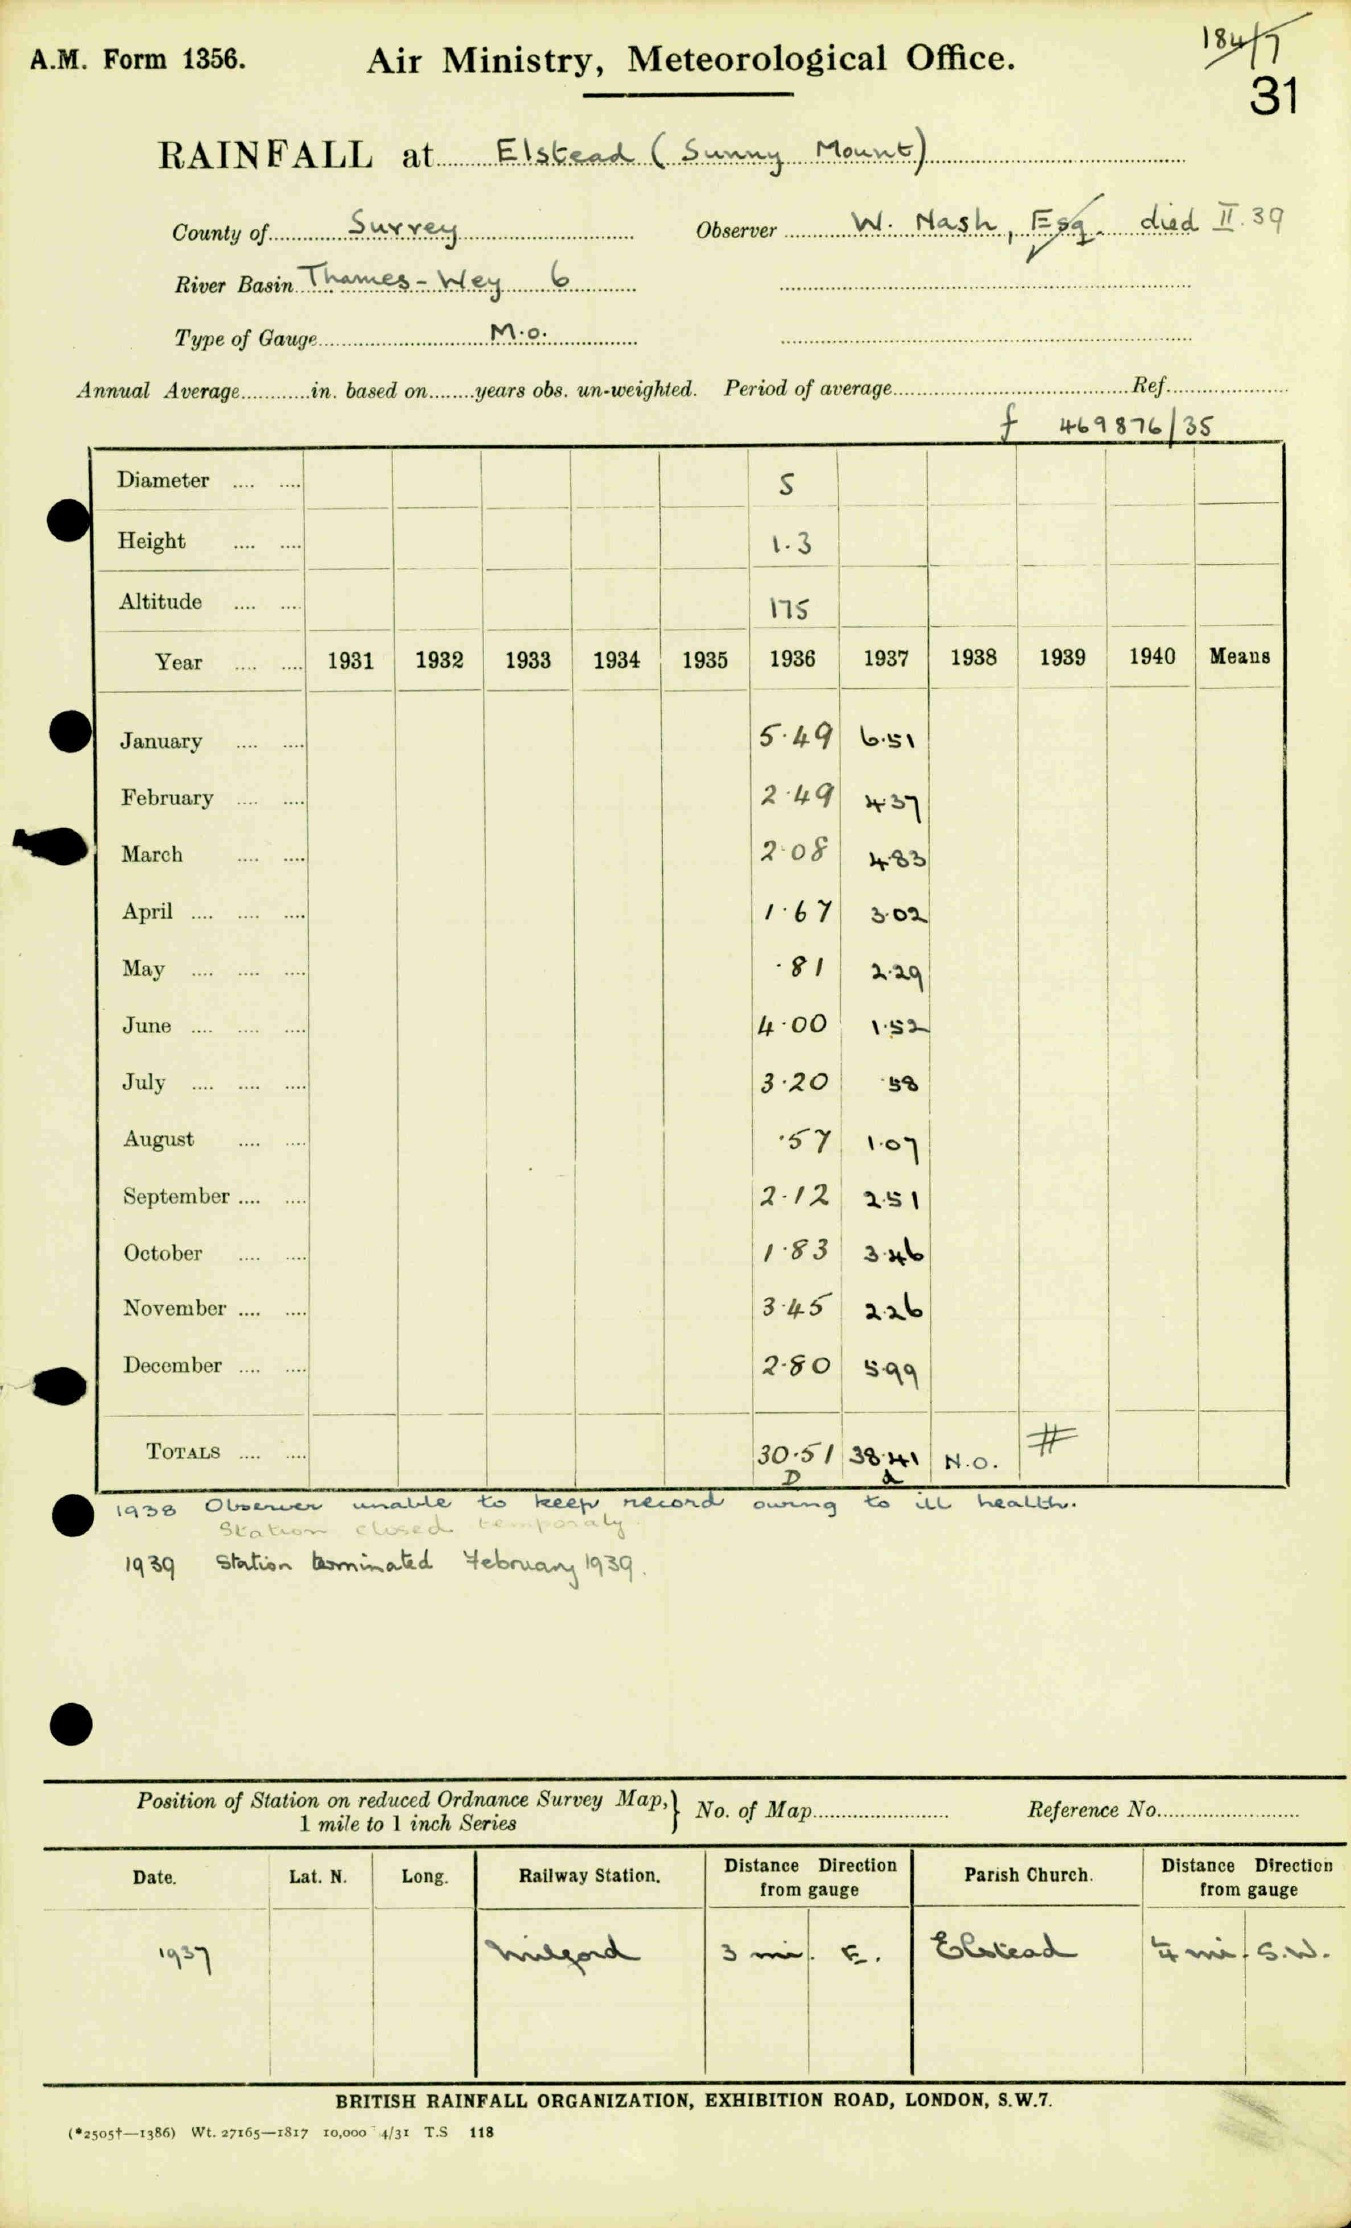 A.M. Form 1356. Air Ministry, Meteorological Office. 184/7
31
RAINFALL at Elstead (Sunny Mount)
County of Surrey Observer W. Nash, Esq. died II.39
River Basin Thames-Wey 6
Type of Gauge M.O.
Annual Average in. based on years obs. un-weighted. Period of average Ref.
f 469876/35
Diameter 5
Height 1.3
Altitude 175
Year 1931 1932 1933 1934 1935 1936 1937 1938 1939 1940 Means
January 5.49 6.51
February 2.49 4.37
March 2.08 4.83
April 1.67 3.02
May .81 2.29
June 4.00 1.52
July 3.20 .58
August .57 1.07
September 2.12 2.51
October 1.83 3.46
November 3.45 2.26
December 2.80 5.99
TOTALS 30.51 38.41 N.O. #
D d
1938 Observer unable to keep record owing to ill health.
Station closed temporaly
1939 Station terminated February 1939.
Position of Station on reduced Ordnance Survey Map, } No. of Map Reference No.
1 mile to 1 inch Series
Date. Lat. N. Long. Railway Station. Distance Direction from gauge Parish Church. Distance Direction from gauge
1937 Milford 3 mi. E. Elstead 1/4 mi. S.W.
BRITISH RAINFALL ORGANIZATION, EXHIBITION ROAD, LONDON, S.W.7.
(*2505†—1386) Wt. 27165—1817 10,000 4/31 T.S 118